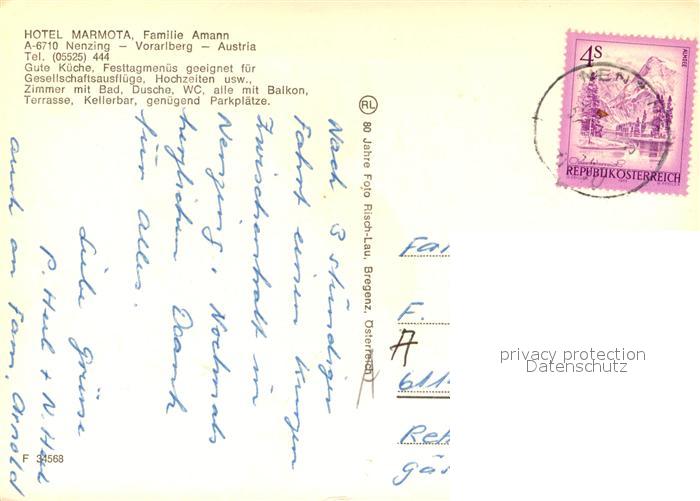 HOTEL MARMOTA, Familie Amann
A-6710 Nenzing — Vorarlberg — Austria
Tel. (05525) 444
Gute Küche, Festtagmenüs geeignet für
Gesellschaftsausflüge, Hochzeiten usw.,
Zimmer mit Bad, Dusche, WC, alle mit Balkon,
Terrasse, Kellerbar, genügend Parkplätze.
Nach 3 stündiger
Fahrt einen kurzen
Zwischenhalt in
Nenzing. Nochmals
herzlichen Dank
für alles.
Liebe Grüsse
P. + N.
auch an Fam. Arnold
RL
80 Jahre Foto Risch-Lau, Bregenz, Österreich
F 34568
4S
ALMSEE
REPUBLIK ÖSTERREICH
NENZING
Fa
F.
A
611
Reb
gäs
privacy protection
Datenschutz